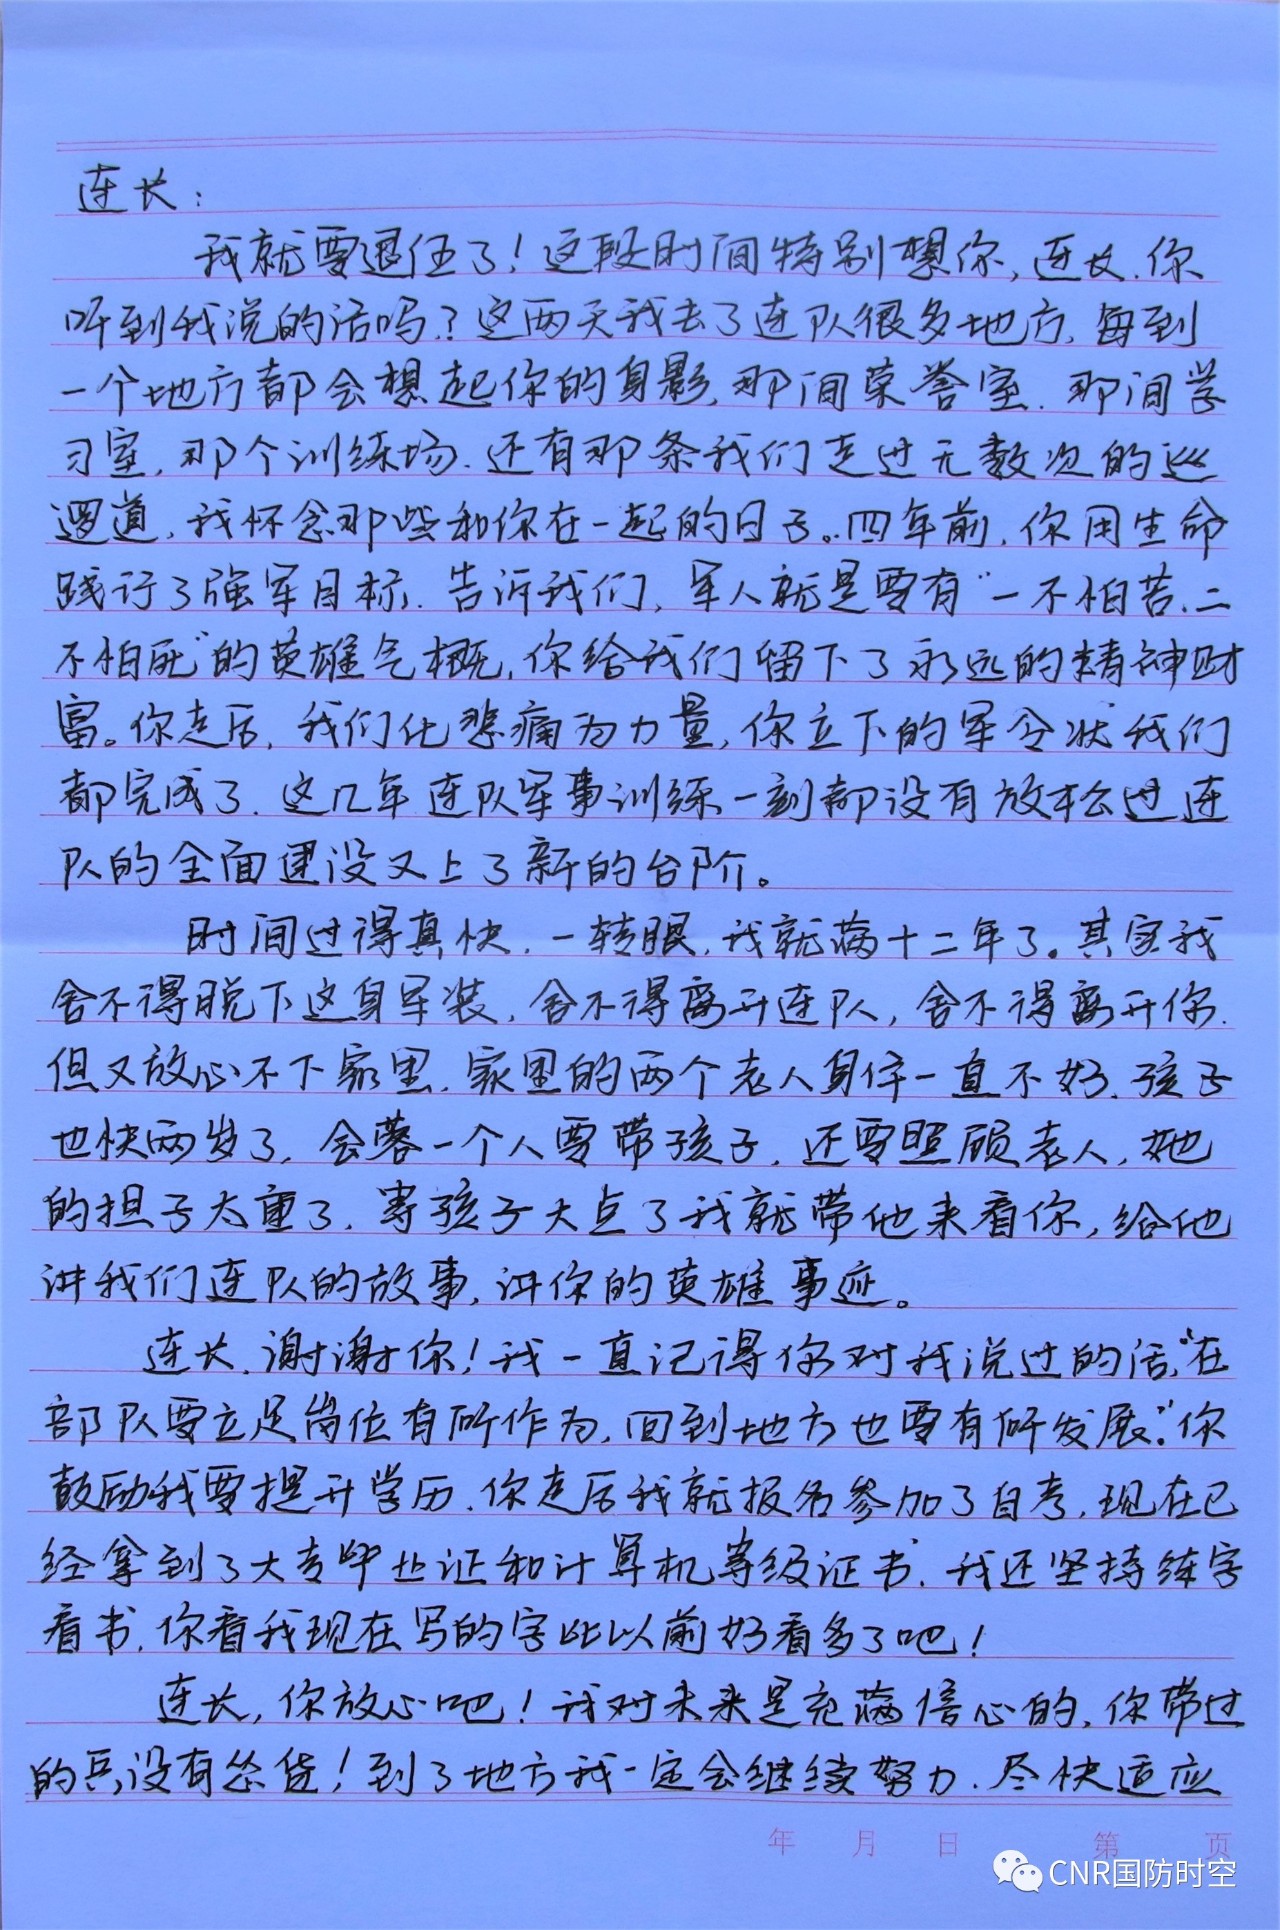 连长：
我就要退伍了！这段时间特别想你，连长，你
听到我说的话吗？这两天我去了连队很多地方，每到
一个地方都会想起你的身影，那间荣誉室，那间学
习室，那个训练场，还有那条我们走过无数次的巡
逻道，我怀念那些和你在一起的日子。四年前，你用生命
践行了强军目标，告诉我们，军人就是要有“一不怕苦、二
不怕死”的英雄气概，你给我们留下了永远的精神财
富。你走后，我们化悲痛为力量，你立下的军令状我们
都完成了，这几年连队军事训练一刻都没有放松过连
队的全面建设又上了新的台阶。
时间过得真快，一转眼，我就满十二年了。其实我
舍不得脱下这身军装，舍不得离开连队，舍不得离开你，
但又放心不下家里，家里的两个老人身体一直不好，孩子
也快两岁了，会蓉一个人要带孩子，还要照顾老人，她
的担子太重了，等孩子大点了我就带他来看你，给他
讲我们连队的故事，讲你的英雄事迹。
连长，谢谢你！我一直记得你对我说过的话，“在
部队要立足岗位有所作为，回到地方也要有所发展。”你
鼓励我要提升学历，你走后我就报名参加了自考，现在已
经拿到了大专毕业证和计算机等级证书，我还坚持练字
看书，你看我现在写的字比以前好看多了吧！
连长，你放心吧！我对未来是充满信心的，你带过
的兵没有怂货！到了地方我一定会继续努力，尽快适应
年 月 日 第 页
CNR国防时空